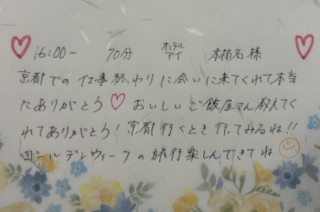 16:00〜 70分 ホテルアイ 本指名様
京都でのお仕事終わりに会いに来てくれて本当
にありがとう♡ おいしいご飯屋さん教えてく
れてありがとう! 京都行くとき行ってみるね!!
ゴールデンウィークの旅行楽しんできてね